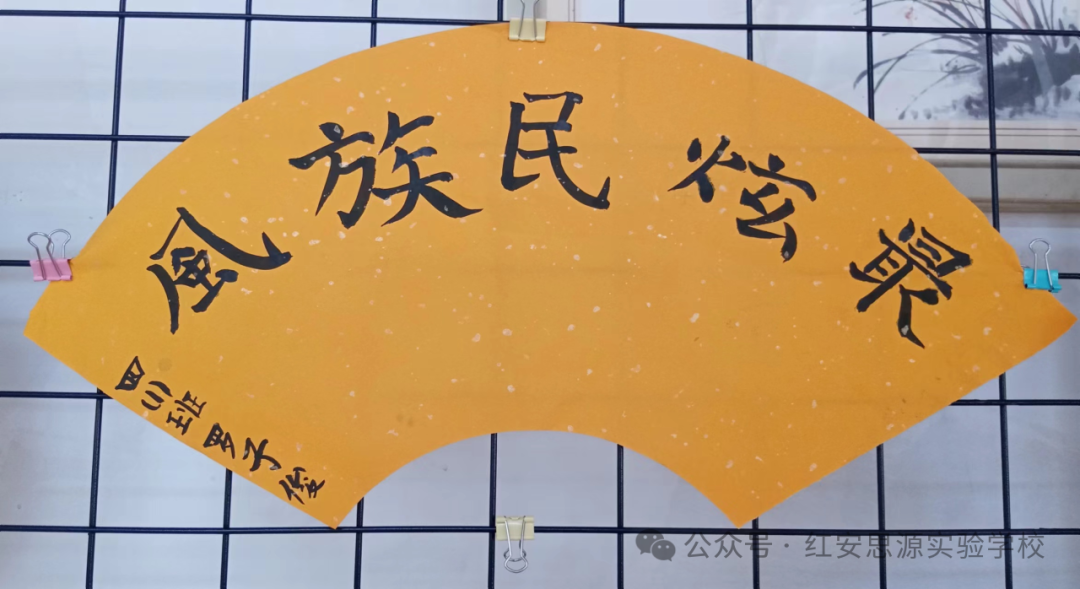 最炫民族風
四(1)班罗子俊
公众号·红安思源实验学校